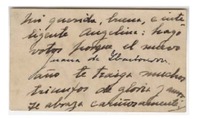 mi querida, buena, e inte-
ligente Angelina: hago
votos porque el nuevo
Juana de Ibarbourou
año te traiga muchos
triunfos de gloria y amor
Te abraza cariñosamente